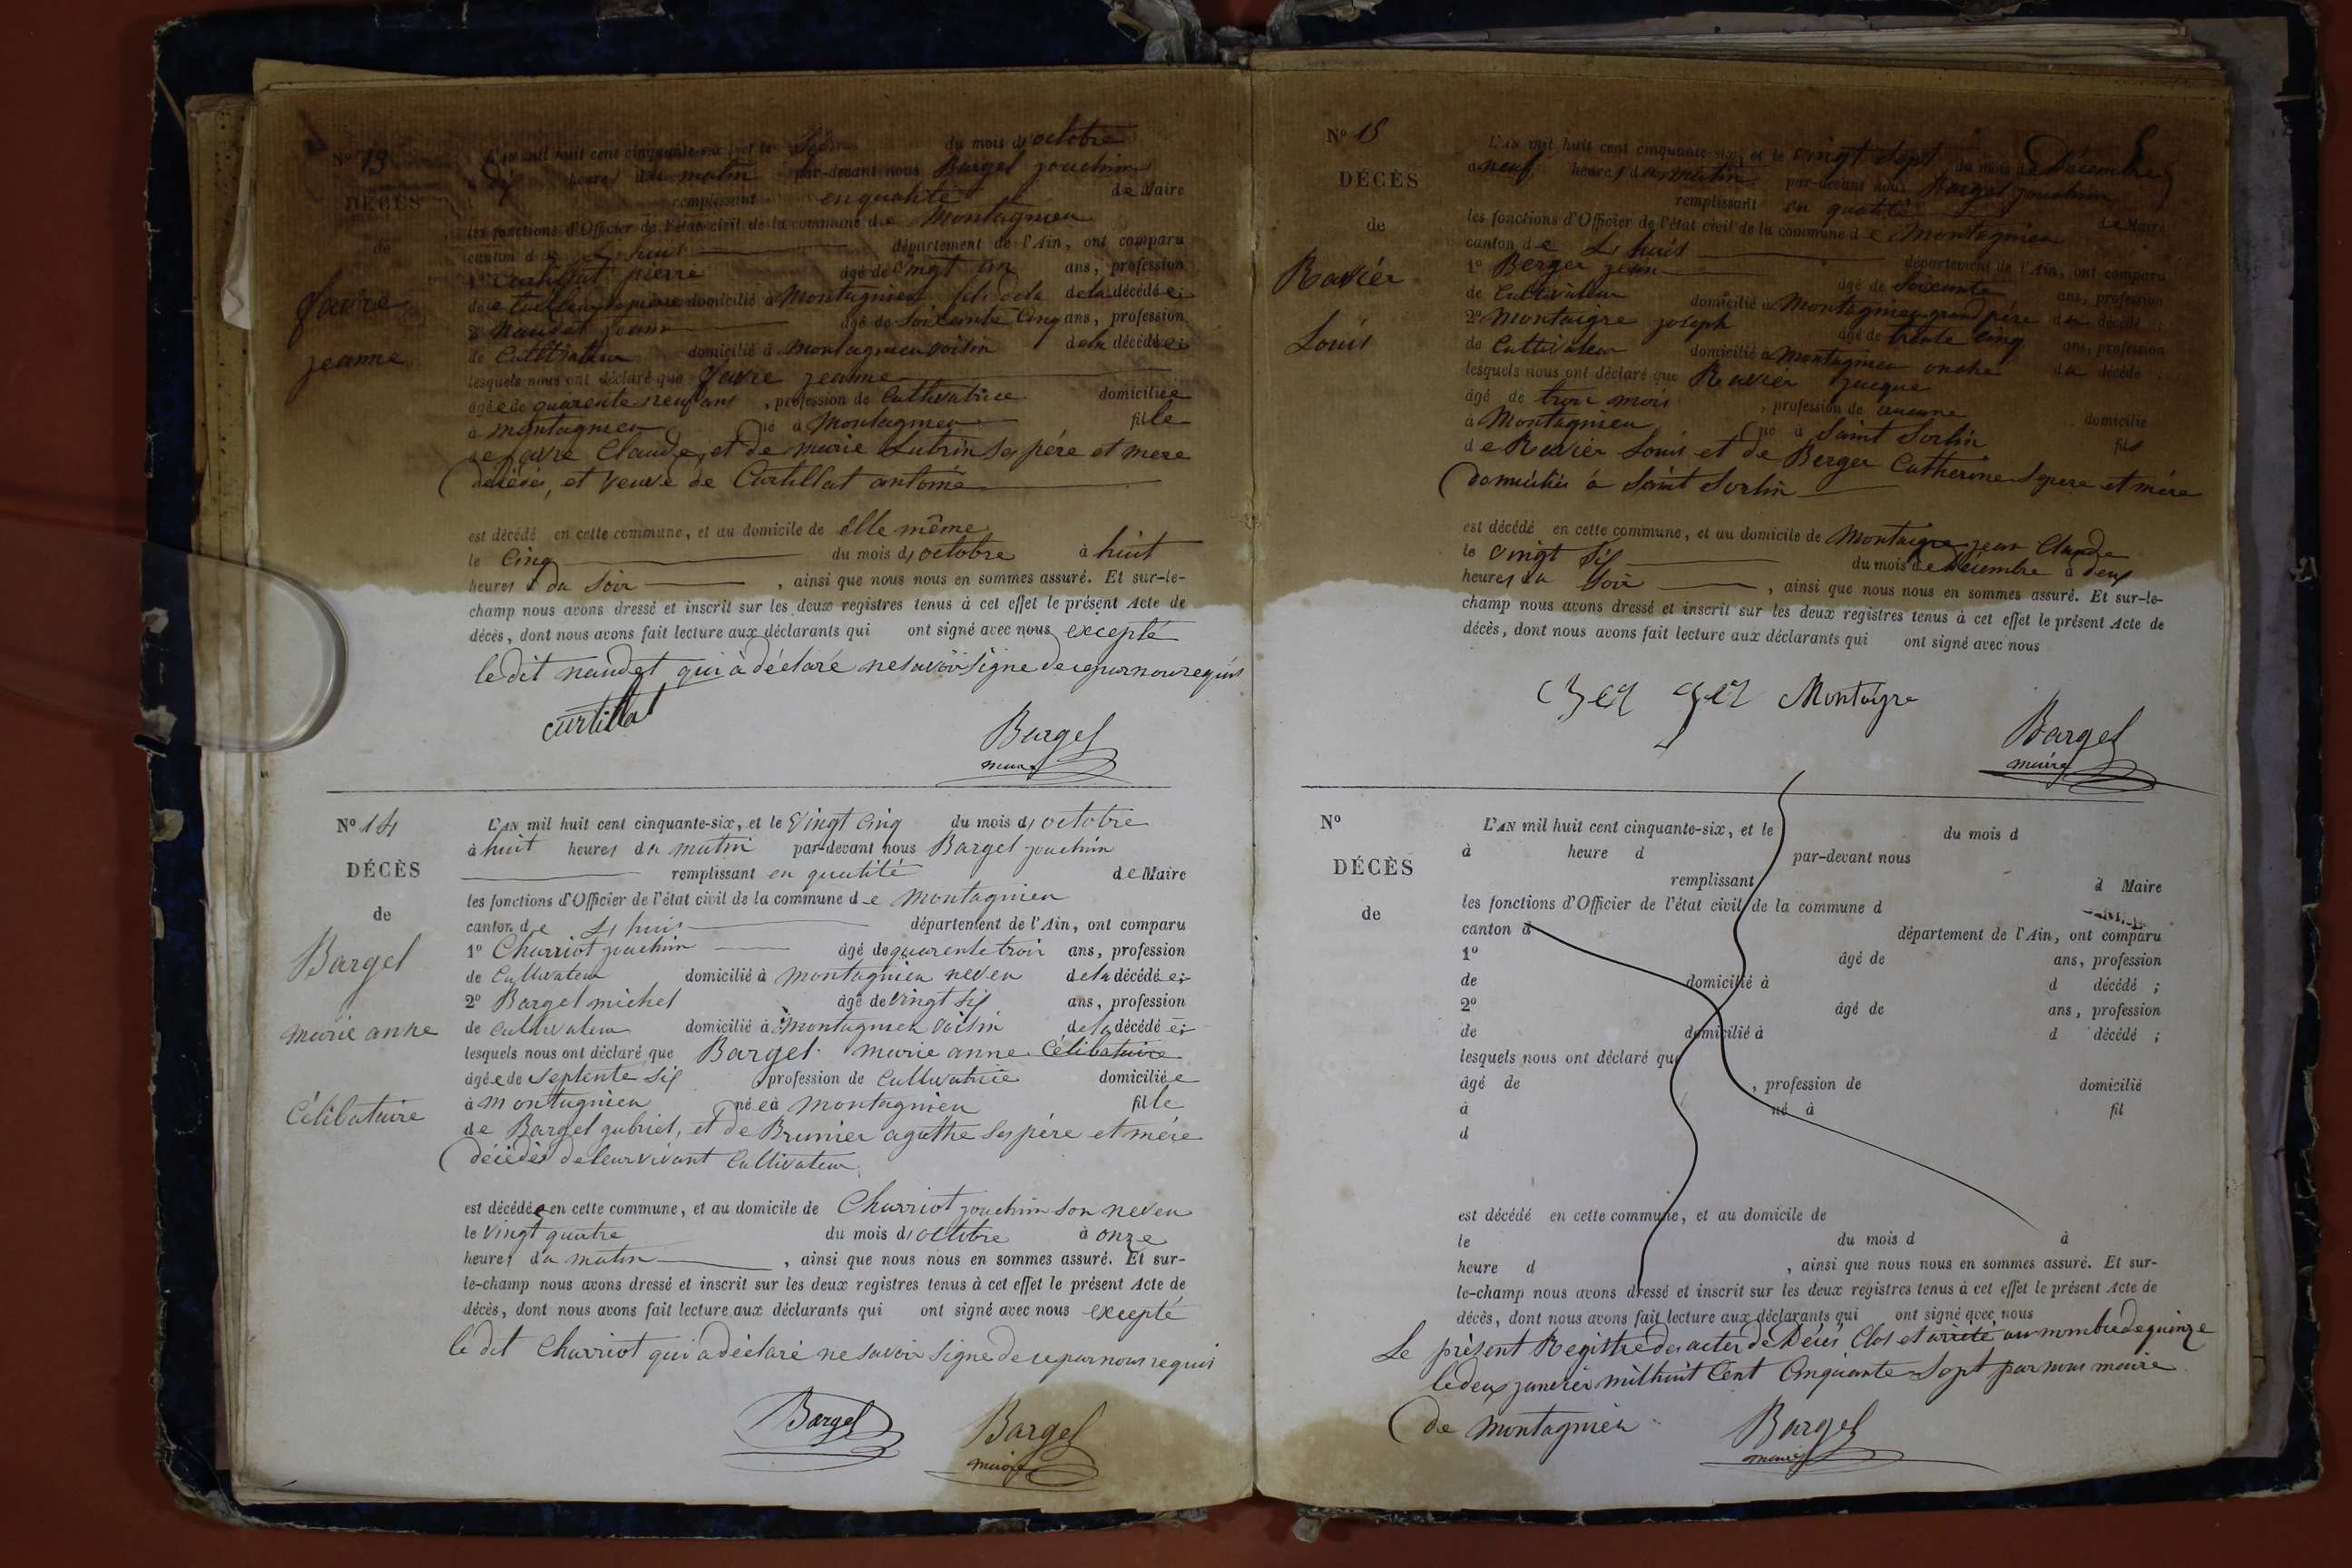 Nº 13
DÉCÈS
de
favre
jeanne
L'AN mil huit cent cinquante-six, et le Six du mois d, octobre
dix heures du matin par-devant nous Bargel jouchim
remplissant en qualité de Maire
les fonctions d'Officier de l'état civil de la commune de Montagnieu
canton de Lhuis département de l'Ain, ont comparu
1º Curtillat pierre âgé de vingt un ans, profession
de domicilié à Montagnieu fils de la de la décédée;
2º Naudet jean âgé de Soixente Cinq ans, profession
de Cultivateur domicilié à Montagnieu voisin de la décédée;
lesquels nous ont déclaré que favre jeanne
âgée de quarente neuf ans, profession de Cultivatrice domiciliée
à montagnieu né à Montagnieu fille
de favre Claude, et de marie Lubrin ses pére et mere
décédés, et veuve de Curtillat antoine
est décédé en cette commune, et au domicile de élle même
le Cinq du mois d, octobre à huit
heures du Soir, ainsi que nous nous en sommes assuré. Et sur-le-
champ nous avons dressé et inscrit sur les deux registres tenus à cet effet le présent Acte de
décès, dont nous avons fait lecture aux déclarants qui ont signé avec nous excepté
le dit naudet qui à déclaré ne savoir signe de ce par nous requis
curtillat
Bargel
maire
Nº 14
DÉCÈS
de
Bargel
marie anne
Célibataire
L'AN mil huit cent cinquante-six, et le Vingt Cinq du mois d, octobre
à huit heures du matin par-devant nous Bargel jouchim
remplissant en qualité de Maire
les fonctions d'Officier de l'état civil de la commune de Montagnieu
canton de Lhuis département de l'Ain, ont comparu
1º Charriot jouchim âgé de quarente trois ans, profession
de Cultivateur domicilié à Montagnieu neveu de la décédée;
2º Bargel michel âgé de vingt six ans, profession
de cultivateur domicilié à Montagnieu voisin de la décédée;
lesquels nous ont déclaré que Bargel marie anne Célibataire
âgée de Septente Six profession de Cultivatrice domiciliée
à Montagnieu née à Montagnieu fille
de Bargel gabriel, et de Brunier agathe ses pére et mére
décédés de leur vivant Cultivateur
est décédée en cette commune, et au domicile de Charriot jouchim son neveu
le Vingt quatre du mois d, octobre à onze
heures du matin, ainsi que nous nous en sommes assuré. Et sur-
le-champ nous avons dressé et inscrit sur les deux registres tenus à cet effet le présent Acte de
décès, dont nous avons fait lecture aux déclarants qui ont signé avec nous excepté
le dit Charriot qui a déclaré ne savoir signe de ce par nous requis
Bargel
Bargel
maire
Nº 15
DÉCÈS
de
Ravier
Louis
L'AN mil huit cent cinquante-six, et le vingt Sept du mois de Décembre
à neuf heures du matin par-devant nous Bargel jouchim
remplissant en qualité de Maire
les fonctions d'Officier de l'état civil de la commune de Montagnieu
canton de Lhuis département de l'Ain, ont comparu
1º Berger jean âgé de Soixente ans, profession
de Cultivateur domicilié à Montagnieu grand pére du décédé;
2º Montaigre joseph âgé de trente Cinq ans, profession
de Cultivateur domicilié à Montagnieu oncle du décédé;
lesquels nous ont déclaré que Ravier jacque
âgé de trois mois, profession de aucune domicilié
à Montagnieu né à Saint Sorlin fils
de Ravier Louis et de Berger Catherine Ses pere et mére
Domiciliés à Saint Sorlin
est décédé en cette commune, et au domicile de Montaigre jean Claude
le vingt Six du mois de Décembre à deux
heures du Soir, ainsi que nous nous en sommes assuré. Et sur-le-
champ nous avons dressé et inscrit sur les deux registres tenus à cet effet le présent Acte de
décès, dont nous avons fait lecture aux déclarants qui ont signé avec nous
Berger Montaigre
Bargel
maire
Nº
DÉCÈS
de
L'AN mil huit cent cinquante-six, et le du mois d
à heure d par-devant nous
remplissant d Maire
les fonctions d'Officier de l'état civil de la commune d
canton d département de l'Ain, ont comparu
1º âgé de ans, profession
de domicilié à d décédé;
2º âgé de ans, profession
de domicilié à d décédé;
lesquels nous ont déclaré que
âgé de, profession de domicilié
à né à fil
d
est décédé en cette commune, et au domicile de
le du mois d à
heure d, ainsi que nous nous en sommes assuré. Et sur-
le-champ nous avons dressé et inscrit sur les deux registres tenus à cet effet le présent Acte de
décès, dont nous avons fait lecture aux déclarants qui ont signé avec nous
Le présent Registre des actes de Décés Clos et arrêté au nombre de quinze
le deux janvier mil huit Cent Cinquante Sept par nous maire
de montagnieu
Bargel
maire